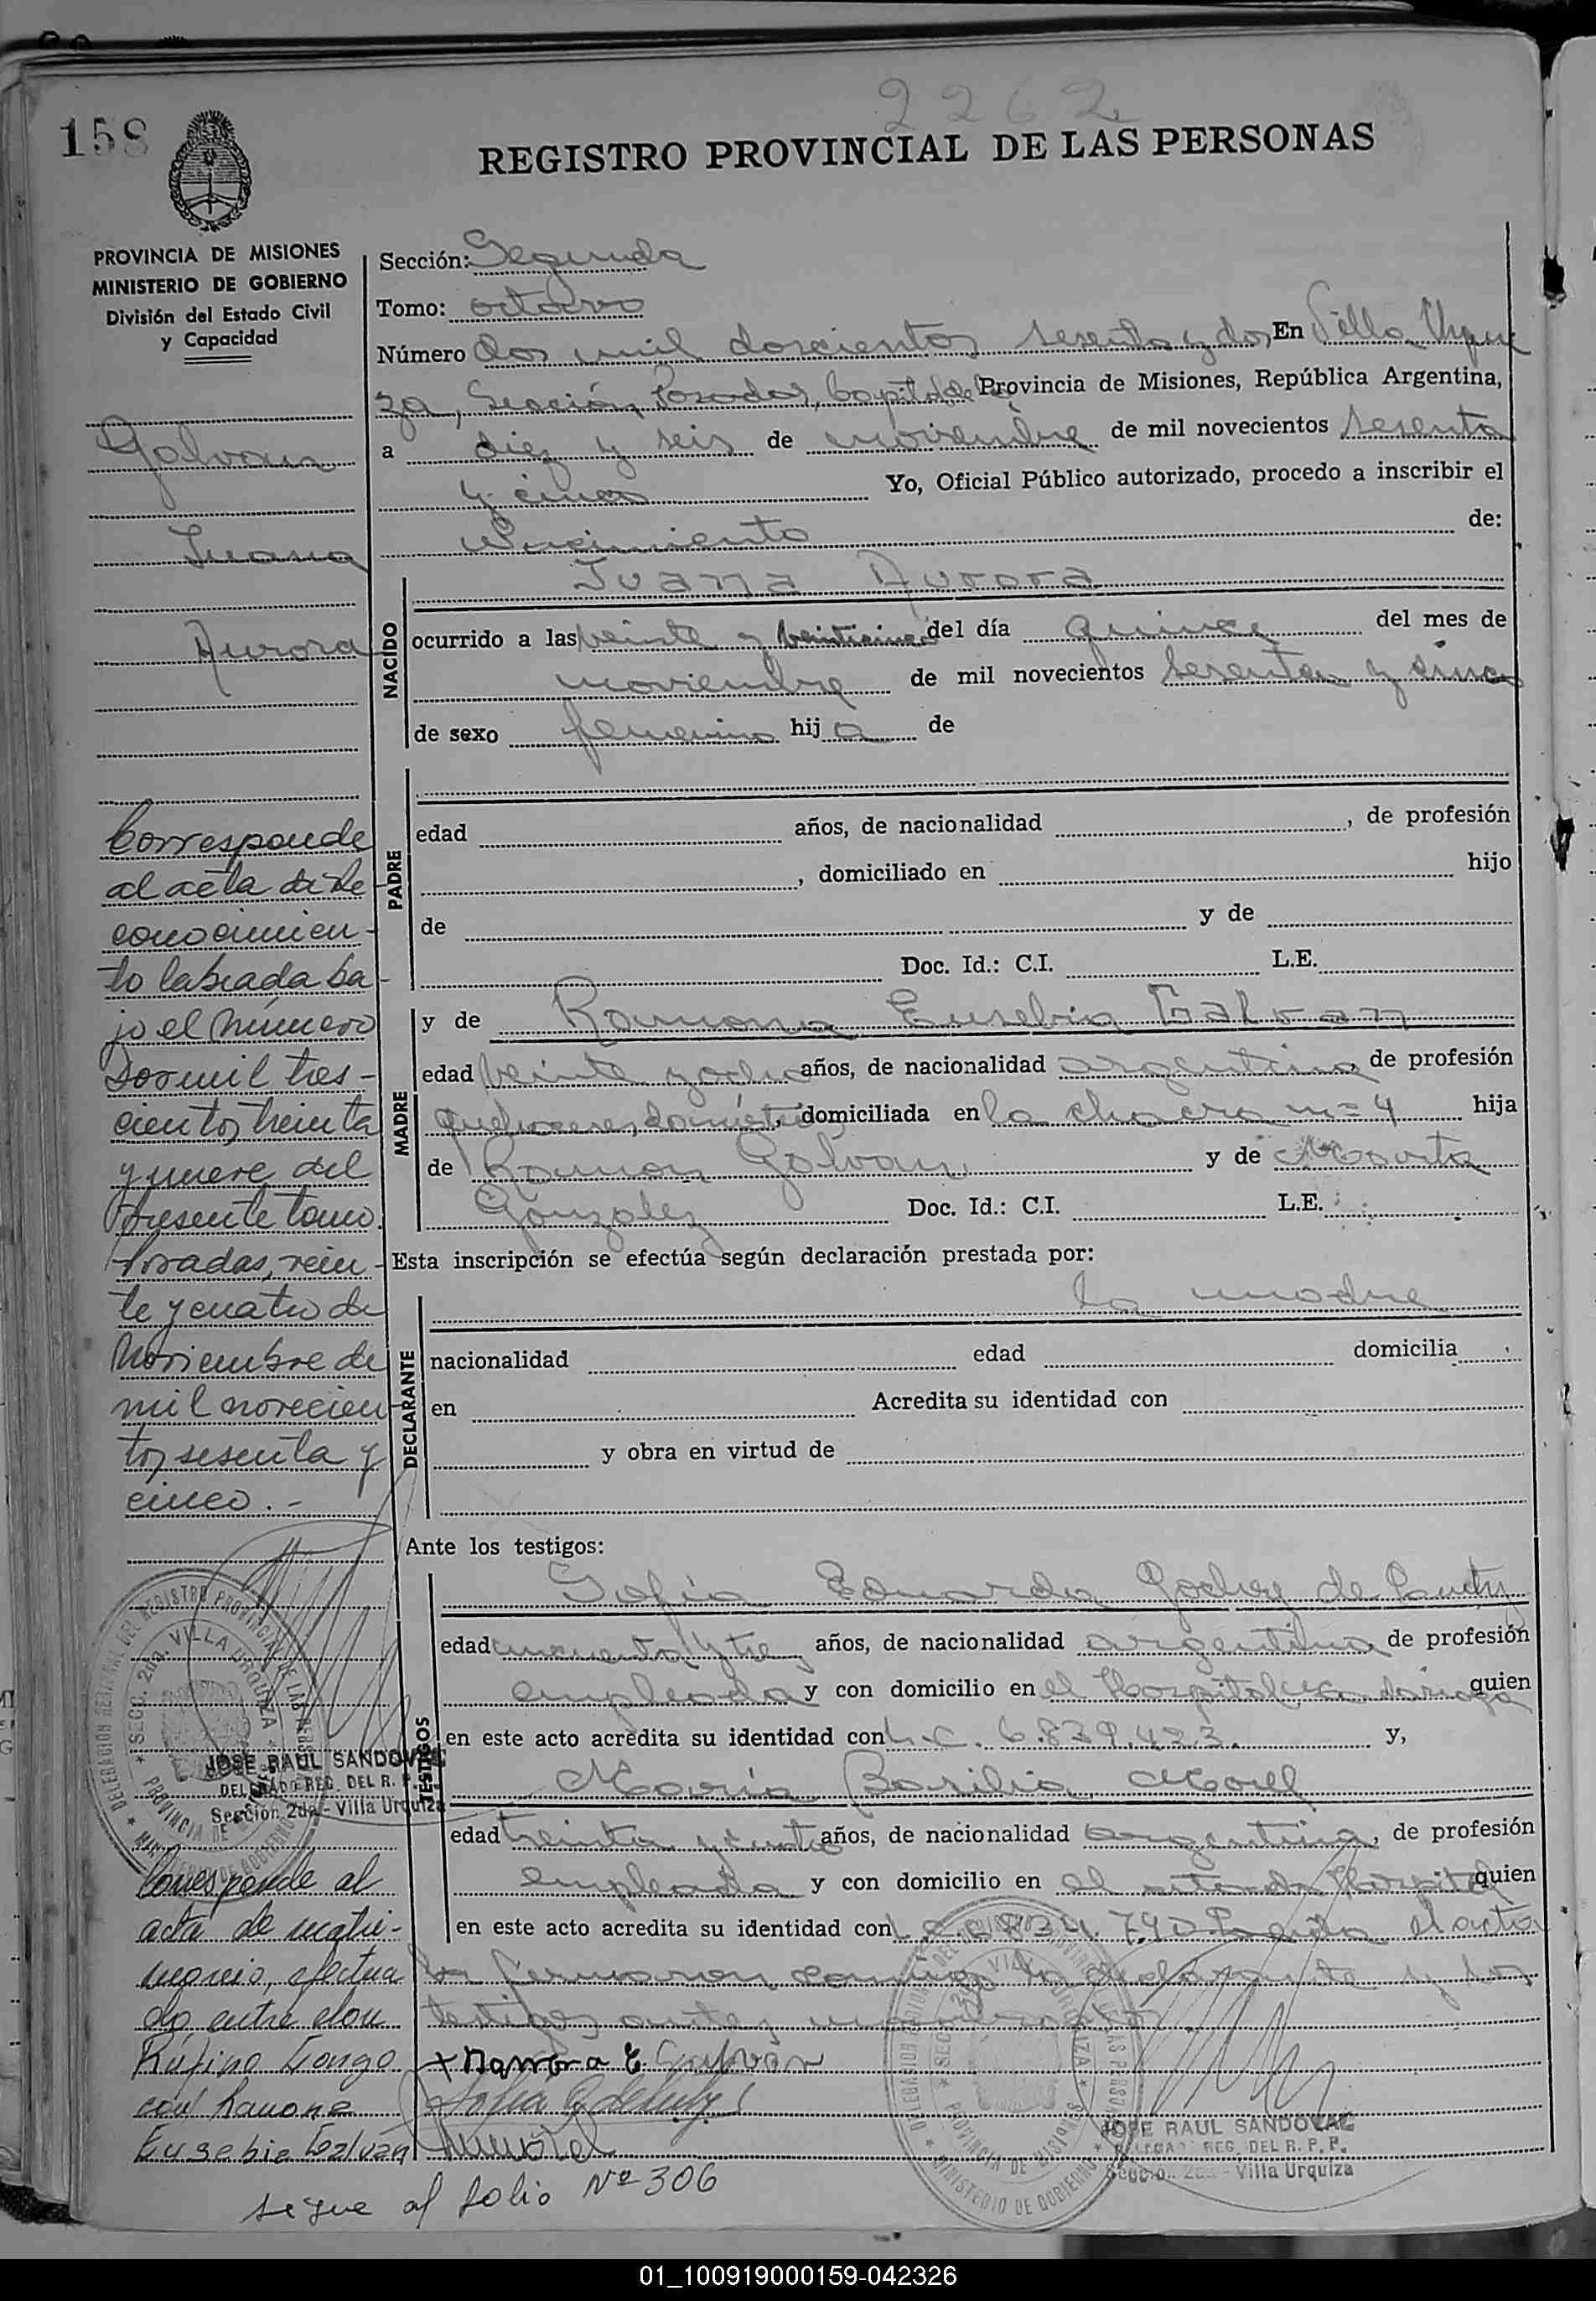 2262
158
REGISTRO PROVINCIAL DE LAS PERSONAS
PROVINCIA DE MISIONES
MINISTERIO DE GOBIERNO
División del Estado Civil
y Capacidad
Galvan
Juana
Aurora
Corresponde
al acta de Re
conocimien-
to labrada ba-
jo el número
Dos mil tres-
cientos treinta
y nueve del
presente tomo.
Posadas, vein-
te y cuatro de
Noviembre de
mil novecien-
tos sesenta y
cinco.-
JOSE RAUL SANDOVAL
DELEGADO REG. DEL R.
Sección 2da - Villa Urquiza
Corresponde al
acta de matri-
monio, efectua
do, entre don
Rufino
con Ramona
Eusebia Galván
Sección: Segunda
Tomo: octavo
Número Dos mil doscientos sesenta y dos, En Villa Urqui
za, Sección Posadas, Capital de Provincia de Misiones, República Argentina,
a diez y seis de noviembre de mil novecientos sesenta
y cinco Yo, Oficial Público autorizado, procedo a inscribir el
Nacimiento de:
NACIDO
Juana Aurora
ocurrido a las veinte y veinticinco del día quince del mes de
noviembre de mil novecientos sesenta y cinco
de sexo femenino hija de
PADRE
edad años, de nacionalidad , de profesión
, domiciliado en hijo
de y de
Doc. Id.: C.I. L.E.
MADRE
y de Ramona Eusebia Galvan
edad veinte y ocho años, de nacionalidad argentina, de profesión
quehaceres domésticos, domiciliada en la chacra nº 4 hija
de Ramon Galvan y de Marta
Gonzalez Doc. Id.: C.I. L.E.
Esta inscripción se efectúa según declaración prestada por:
DECLARANTE
la madre
nacionalidad edad domicilia
en Acredita su identidad con
y obra en virtud de
Ante los testigos:
TESTIGOS
Sofia Eduarda Godoy de
edad cincuenta y tres años, de nacionalidad argentina, de profesión
empleada y con domicilio en el Hospital quien
en este acto acredita su identidad con L.C. 6.839.423. y,
María Basilia Morel
edad treinta y cuatro años, de nacionalidad argentina, de profesión
empleada y con domicilio en el citado Hospital quien
en este acto acredita su identidad con 790 Leida el acta
la firmaron conmigo la declarante y los
testigos antes
x Ramona E. Galván
JOSE RAUL SANDOVAL
DELEGADO REG. DEL R. P. P.
Sección 2da - Villa Urquiza
sigue al folio Nº 306
01_100919000159-042326